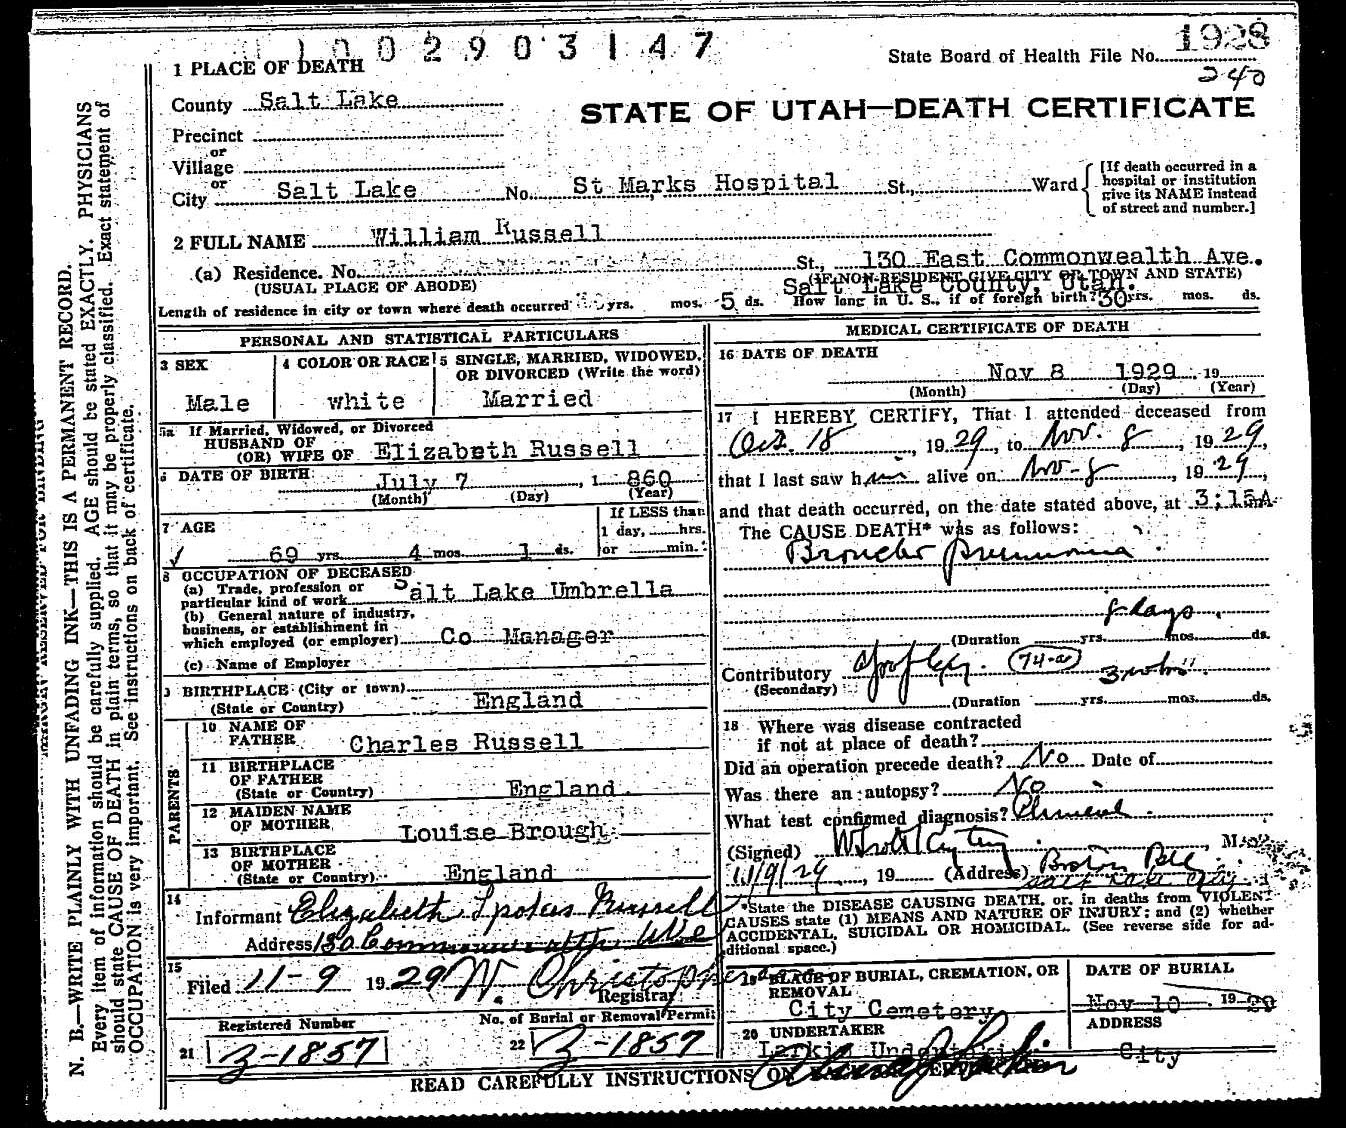 1002903147
State Board of Health File No. 1928
240
1 PLACE OF DEATH
County Salt Lake
STATE OF UTAH—DEATH CERTIFICATE
Precinct
or
Village
or
City Salt Lake No. St Marks Hospital St., Ward
[If death occurred in a
hospital or institution
give its NAME instead
of street and number.]
2 FULL NAME William Russell
(a) Residence. No. St., 130 East Commonwealth Ave.
(USUAL PLACE OF ABODE) (IF NON-RESIDENT GIVE CITY OR TOWN AND STATE)
Salt Lake County, Utah.
Length of residence in city or town where death occurred yrs. mos. 5 ds. How long in U. S., if of foreign birth? 30 yrs. mos. ds.
PERSONAL AND STATISTICAL PARTICULARS
3 SEX
Male
4 COLOR OR RACE
white
5 SINGLE, MARRIED, WIDOWED,
OR DIVORCED (Write the word)
Married
5a If Married, Widowed, or Divorced
HUSBAND OF
(OR) WIFE OF Elizabeth Russell
6 DATE OF BIRTH
July 7, 1860
(Month) (Day) (Year)
7 AGE
69 yrs. 4 mos. 1 ds.
If LESS than
1 day, hrs.
or min.
8 OCCUPATION OF DECEASED
(a) Trade, profession or
particular kind of work Salt Lake Umbrella
(b) General nature of industry,
business, or establishment in
which employed (or employer) Co Manager
(c) Name of Employer
9 BIRTHPLACE (City or town)
(State or Country) England
PARENTS
10 NAME OF
FATHER Charles Russell
11 BIRTHPLACE
OF FATHER
(State or Country) England
12 MAIDEN NAME
OF MOTHER Louise Brough
13 BIRTHPLACE
OF MOTHER
(State or Country) England
14
Informant Elizabeth Russell
Address 130 Commonwealth Ave
15
Filed 11-9 1929 W. Christopherson
Registrar
Registered Number
21 Z-1857
No. of Burial or Removal Permit
22 Z-1857
MEDICAL CERTIFICATE OF DEATH
16 DATE OF DEATH
Nov 8 1929, 19
(Month) (Day) (Year)
17 I HEREBY CERTIFY, That I attended deceased from
Oct. 18, 1929, to Nov. 8, 1929,
that I last saw him alive on Nov-8, 1929,
and that death occurred, on the date stated above, at 3;15A
The CAUSE DEATH* was as follows:
Broncho pneumonia
8 days
(Duration yrs. mos. ds.
Contributory Apoplexy. 74-a 3 wks
(Secondary)
(Duration yrs. mos. ds.
18 Where was disease contracted
if not at place of death?
Did an operation precede death? No Date of
Was there an autopsy? No
What test confirmed diagnosis? Clinical
(Signed) M.
11/9/29, 19 (Address) Boston Bldg
Salt Lake City
*State the DISEASE CAUSING DEATH, or, in deaths from VIOLENT
CAUSES state (1) MEANS AND NATURE OF INJURY; and (2) whether
ACCIDENTAL, SUICIDAL OR HOMICIDAL. (See reverse side for ad-
ditional space.)
19 PLACE OF BURIAL, CREMATION, OR
REMOVAL
City Cemetery
DATE OF BURIAL
Nov 10, 1929
20 UNDERTAKER
Larkin
ADDRESS
City
READ CAREFULLY INSTRUCTIONS
MARGIN RESERVED FOR BINDING
N. B.—WRITE PLAINLY WITH UNFADING INK—THIS IS A PERMANENT RECORD.
Every item of information should be carefully supplied. AGE should be stated EXACTLY. PHYSICIANS
should state CAUSE OF DEATH in plain terms, so that it may be properly classified. Exact statement of
OCCUPATION is very important. See instructions on back of certificate.